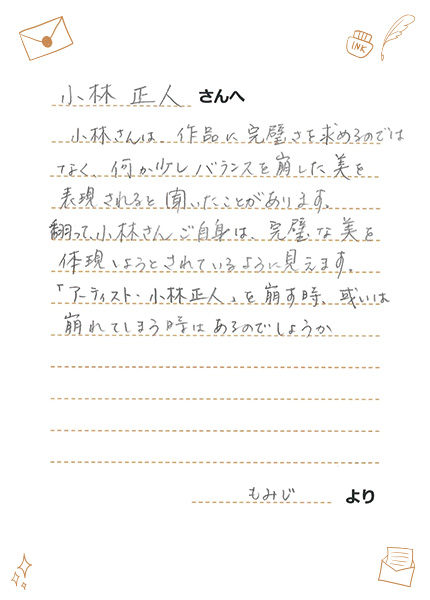 INK
小林 正人 さんへ
小林さんは、作品に完璧さを求めるのでは
なく、何か少しバランスを崩した美を
表現されると聞いたことがあります。
翻って、小林さんご自身は、完璧な美を
体現しようとされているように見えます。
「アーティスト・小林正人」を崩す時、或いは
崩れてしまう時はあるのでしょうか
もみじ より